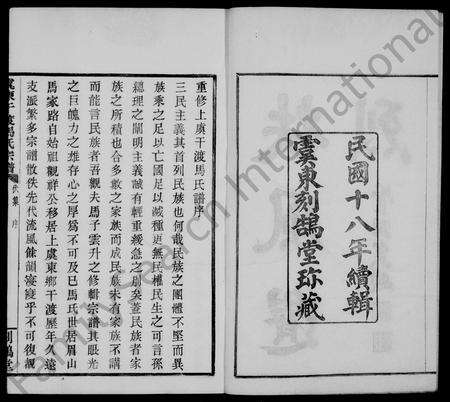 民國十八年續輯
雲東刻鵠堂珎藏
重修上虞干渡馬氏譜序
三民主義其首列民族也何哉民族之團體不堅而異
族乘之足以亡國足以滅種更無民權民生之可言孫
總理之闡明主義誠有輕重緩急之別矣蓋民族者家
族之所積也合多數之家族而成民族未有家族不講
而能言民族者吾觀夫馬子雲升之修輯宗譜其眼光
之巨魄力之雄存心之厚為不可及已馬氏世居眉山
馬家路自始祖觀祥公移居上虞東鄉干渡歷年久遠
支派繁多宗譜散佚先代流風餘韻寖寖乎不可復覩
氏集 序
刻鵠堂
FamilySearch International